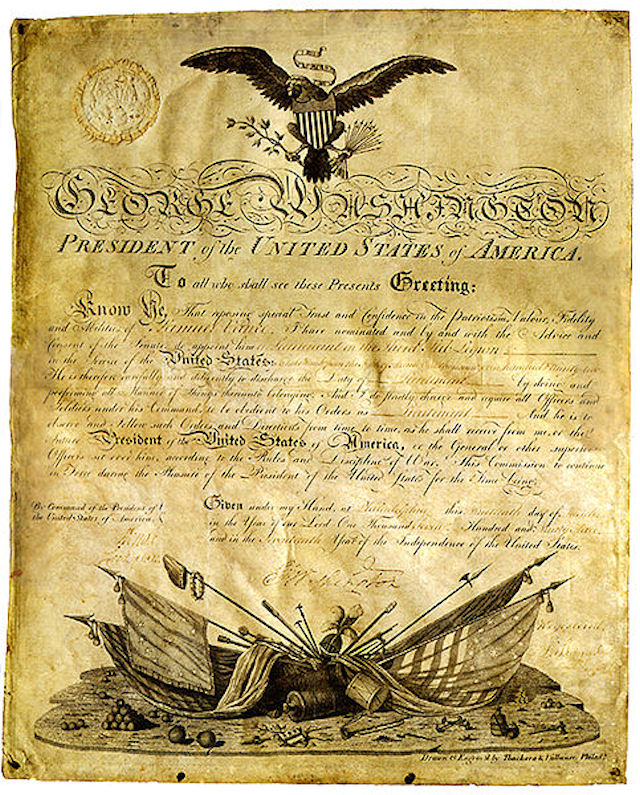 GEORGE WASHINGTON
PRESIDENT, of the UNITED STATES, of AMERICA.
To all who shall see these Presents Greeting:
Know Ye, That reposing special Trust and Confidence in the Patriotism, Valour, Fidelity
and Abilities of I have nominated and by and with the Advice and
Consent of the Senate, do appoint him Lieutenant in
in the Service of the United States:
He is therefore carefully and diligently to discharge the Duty of Lieutenant by doing and
performing all Manner of Things thereunto belonging; And I do strictly charge and require all Officers and
Soldiers under his Command, to be obedient to his Orders as Lieutenant And he is to
observe and follow such Orders and Directions from time to time, as he shall receive from me, or the
future President of the United States of America, or the General or other superior
Officers set over him, according to the Rules and Discipline of War. This Commission to continue
in Force during the Pleasure of the President of the United States for the Time being.
By Command of the President of
the United States of America,
Given under my Hand, at Philadelphia this day of
in the Year of our Lord One Thousand Hundred and
and in the Year of the Independence of the United States.
G Washington
Registered
Drawn & Engrav'd by Thackara & Vallance Philad.ª